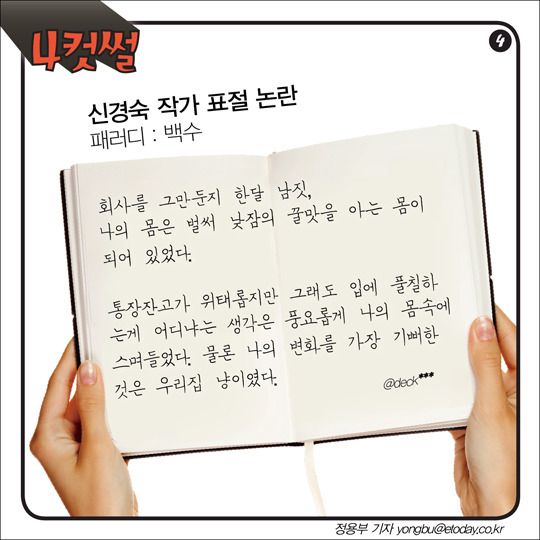 4컷썰
4
신경숙 작가 표절 논란
패러디 : 백수
회사를 그만둔지 한달 남짓,
나의 몸은 벌써 낮잠의 꿀맛을 아는 몸이
되어 있었다.
통장잔고가 위태롭지만 그래도 입에 풀칠하
는게 어디냐는 생각은 풍요롭게 나의 몸속에
스며들었다. 물론 나의 변화를 가장 기뻐한
것은 우리집 냥이였다.
@deck***
정용부 기자 yongbu@etoday.co.kr